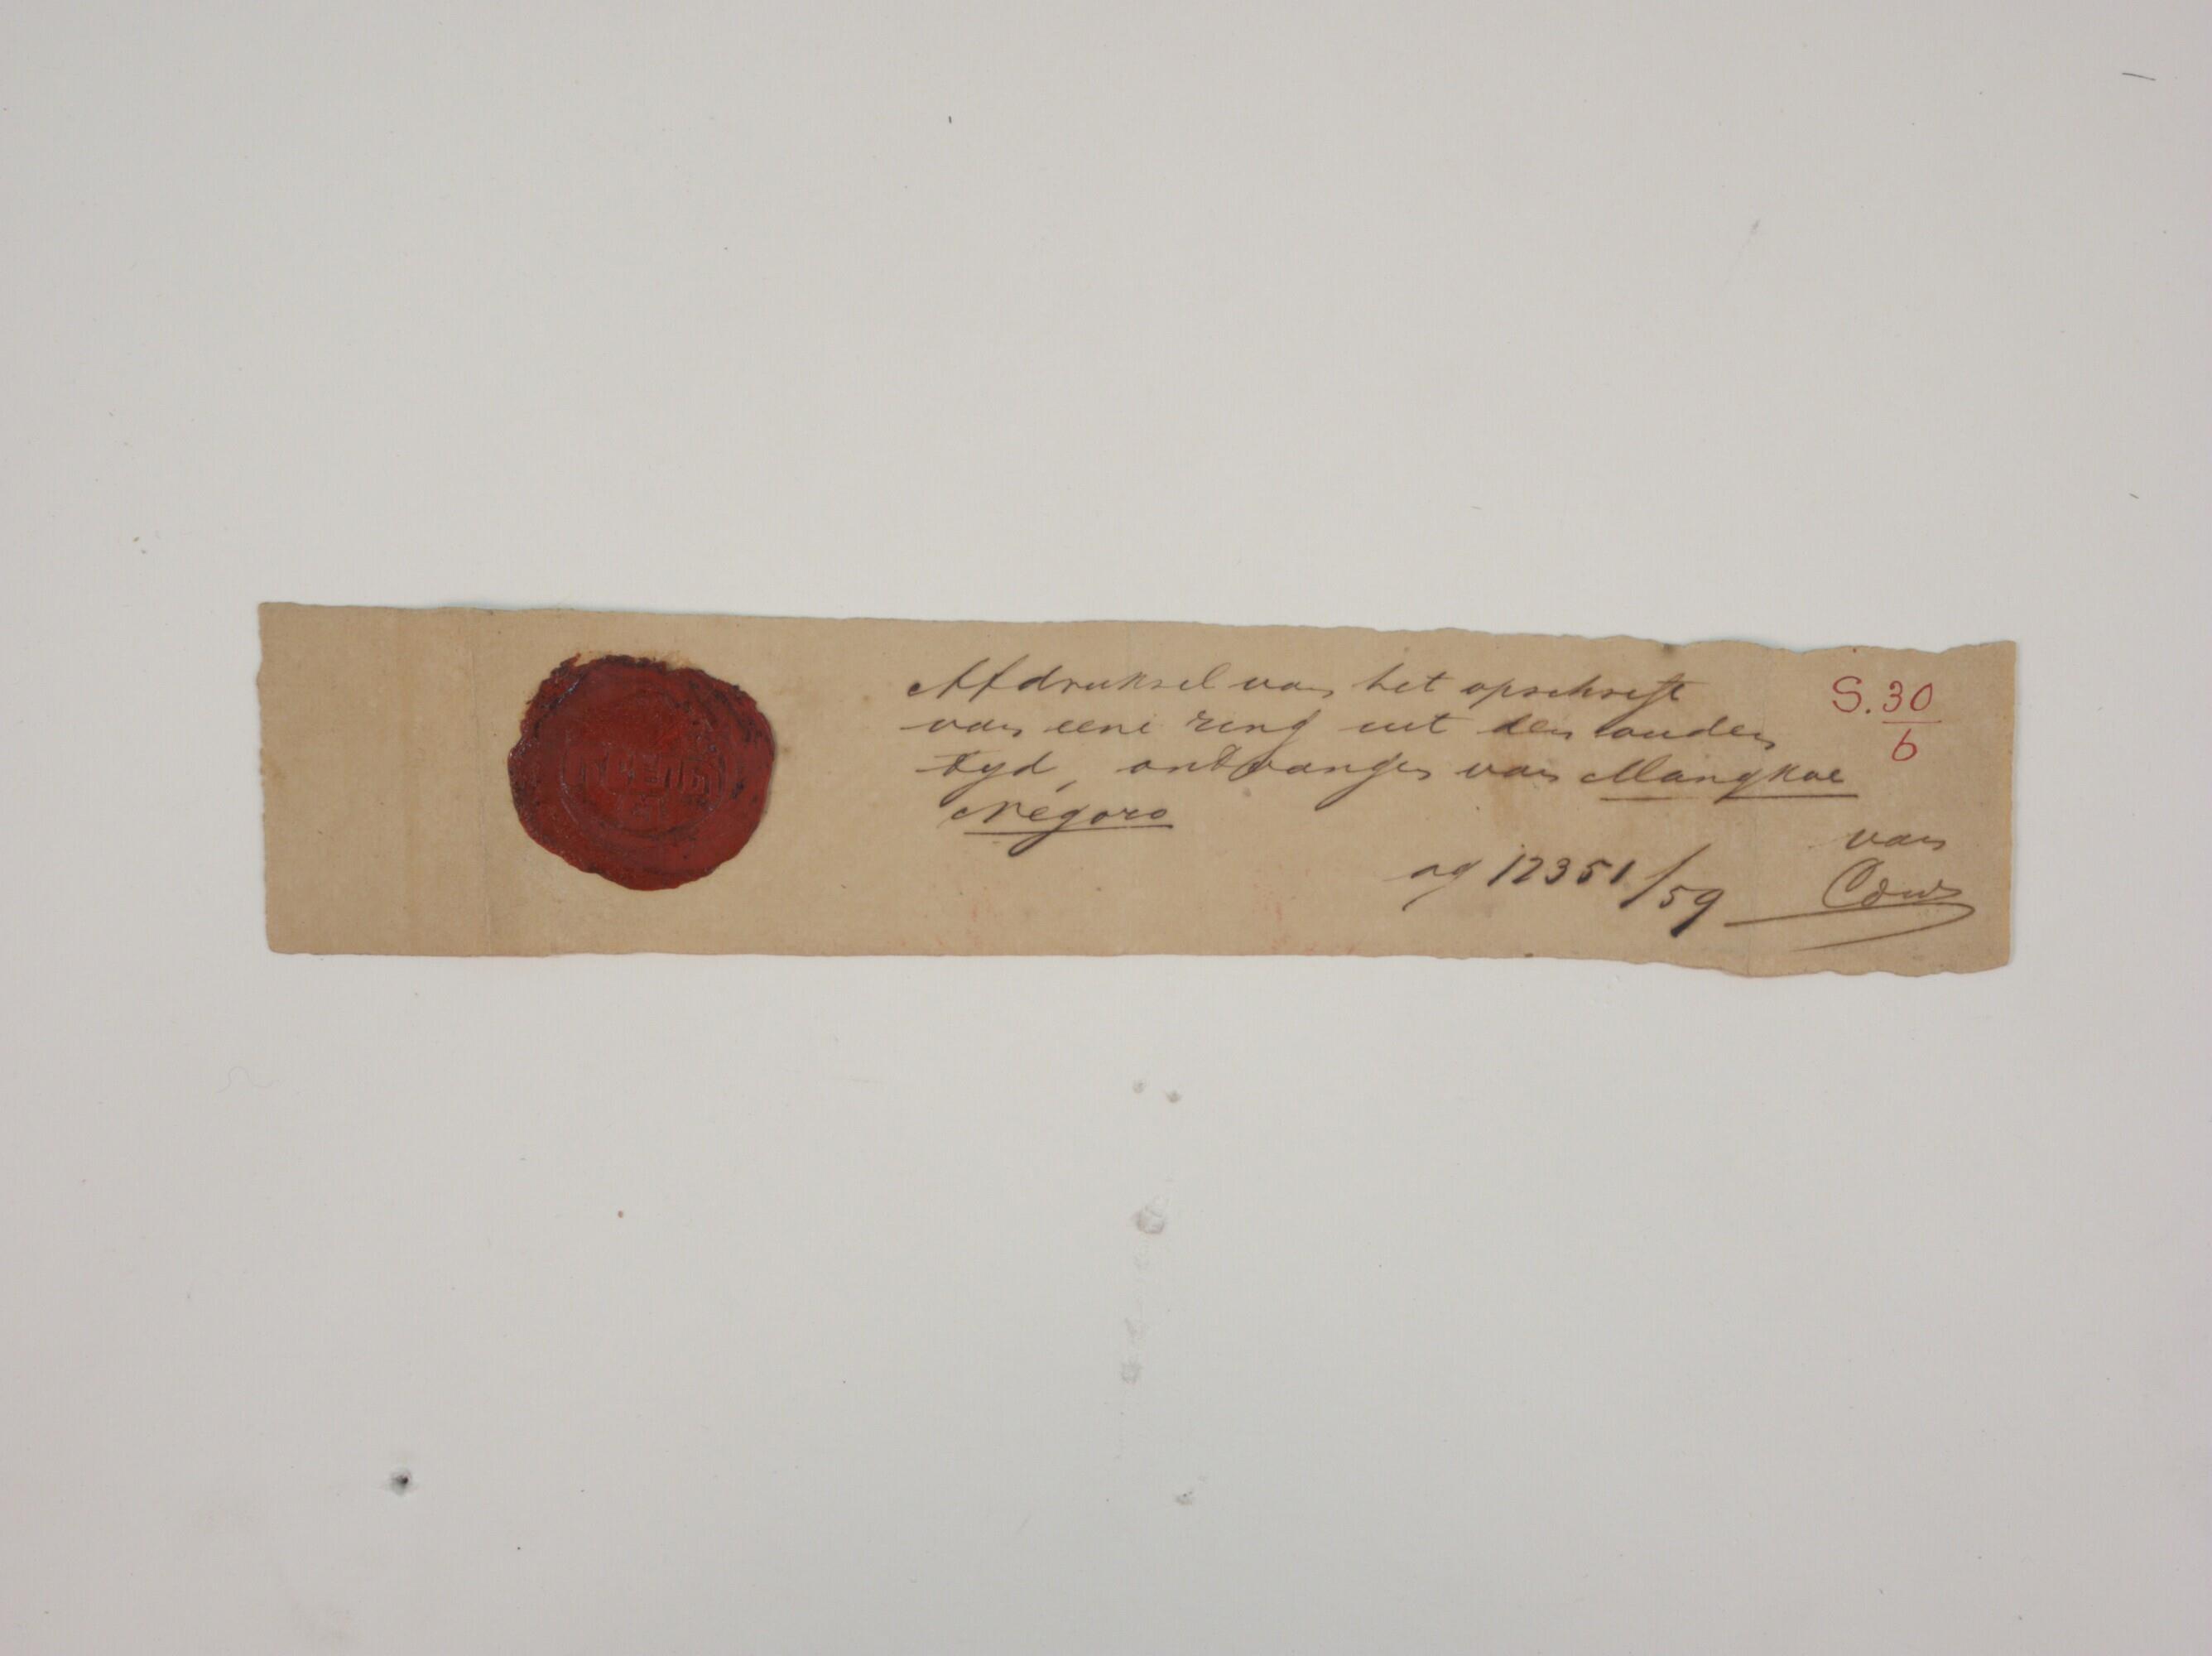 Afdruksel van het opschrift
van eene ring uit den ouden
tyd, ontvangen van Mangkoe
Négoro
S. 30
6
ag 12351/59
van